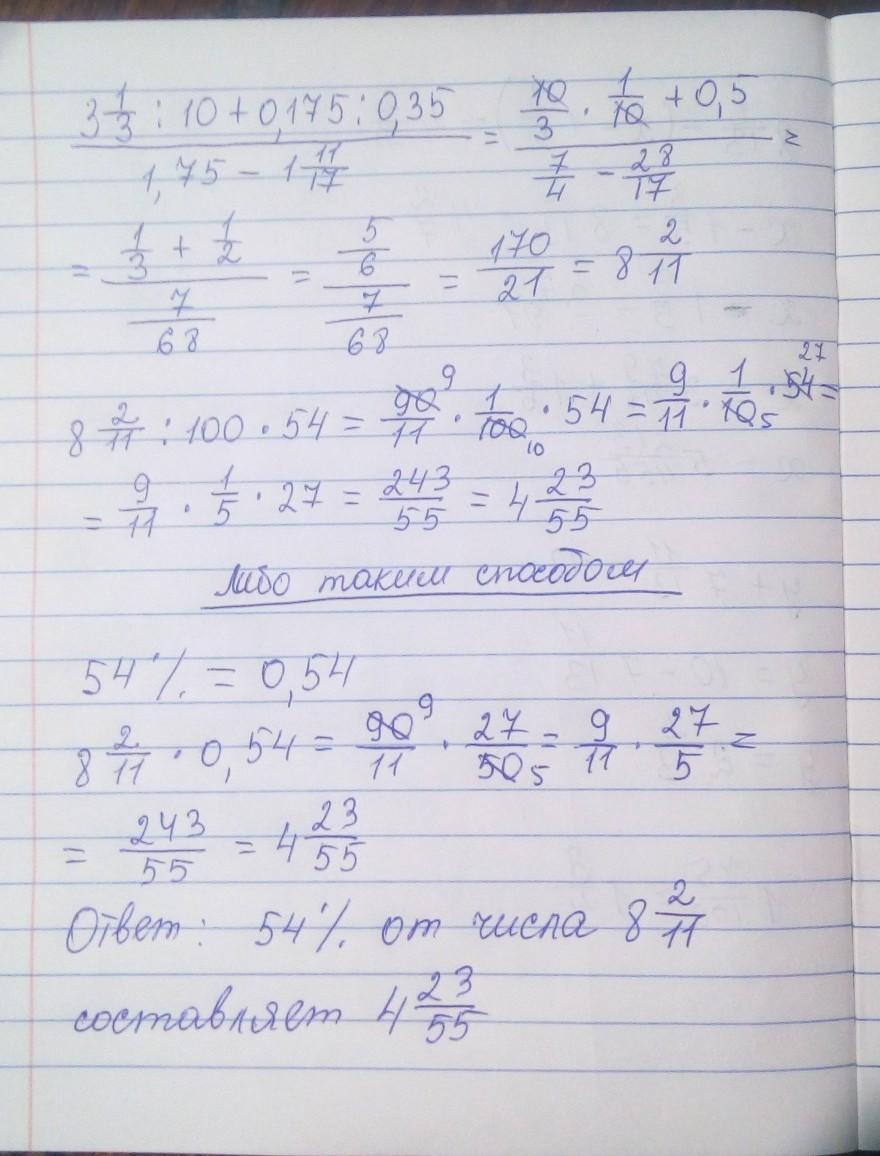 3 1/3 : 10 + 0,175 : 0,35 / 1,75 − 1 11/17 = 10/3 · 1/10 + 0,5 / 7/4 − 28/17 =
= 1/3 + 1/2 / 7/68 = 5/6 / 7/68 = 170/21 = 8 2/11
8 2/11 : 100 · 54 = 90 9/11 · 1/100 10 · 54 = 9/11 · 1/10 5 · 54 27 =
= 9/11 · 1/5 · 27 = 243/55 = 4 23/55
либо таким способом
54% = 0,54
8 2/11 · 0,54 = 90 9/11 · 27/50 5 = 9/11 · 27/5 =
= 243/55 = 4 23/55
Ответ: 54% от числа 8 2/11
составляет 4 23/55